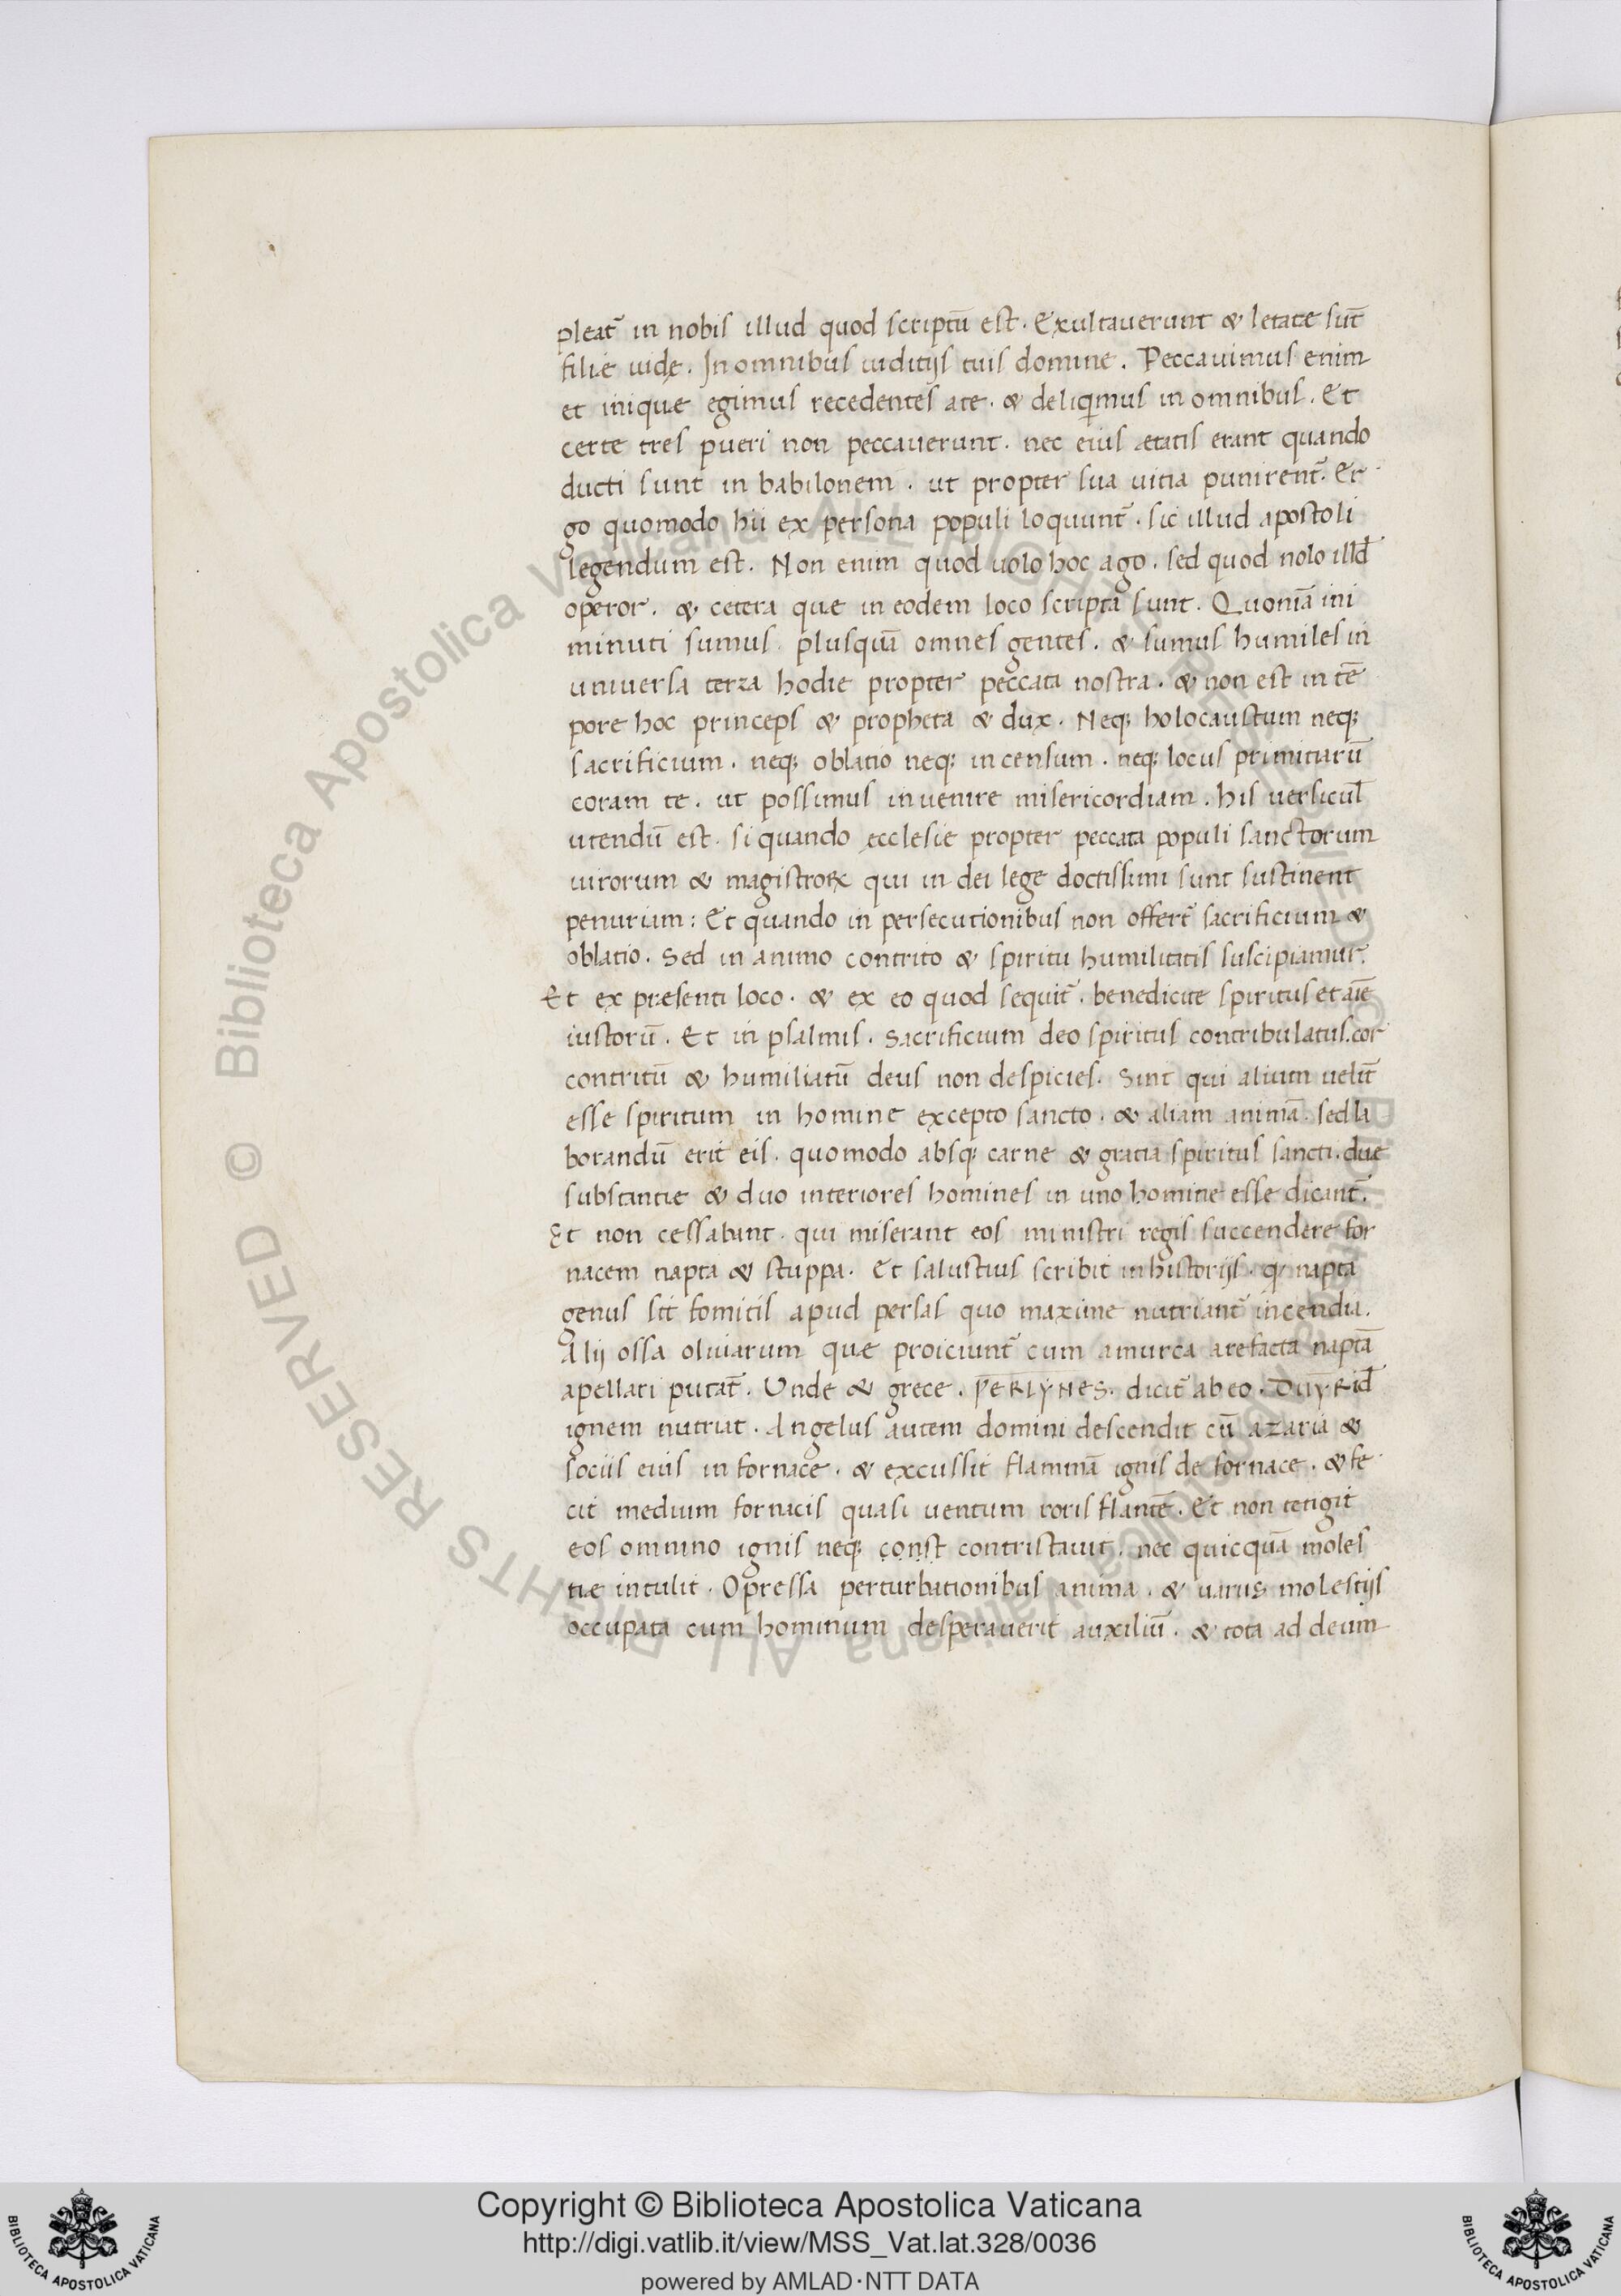 pleat᷑ in nobis illud quod scriptū est. Exultauerunt & letate sūt
filie iude. In omnibus iuditijs tuis domine. Peccauimus enim
et inique egimus recedentes ate. & deliqimus in omnibus. Et
certe tres pueri non peccauerunt. nec eius ætatis erant quando
ducti sunt in babilonem. ut propter sua uitia punirent᷑. Er
go quomodo hii ex persona populi loquunt᷑. sic illud apostoli
legendum est. Non enim quod uolo hoc ago. sed quod nolo illd̄
operor. & cetera que in eodem loco scripta sunt. Quoniā ini
minuti sumus plusquā omnes gentes. & sumus humiles in
uniuersa terra hodie propter peccata nostra. & non est in tē
pore hoc princeps & propheta & dux. Neq; holocaustum neq;
sacrificium. neq; oblatio neq; incensum. neq; locus primitiarū
coram te. ut possimus inuenire misericordiam. his uersicul̄
utendū est. si quando ecclesie propter peccata populi sanctorum
uirorum & magistroꝝ qui in dei lege doctissimi sunt sustinent
penuriam: Et quando in persecutionibus non offert᷑ sacrificium &
oblatio. Sed in animo contrito & spiritu humilitatis suscipiamur.
Et ex presenti loco. & ex eo quod sequit᷑. benedicite spiritus et aīe
iustorū. Et in psalmis. Sacrificium deo spiritus contribulatus. cor
contritū & humiliatū deus non despicies. Sint qui alium uelīt
esse spiritum in homine excepto sancto. & aliam animā. sed la
borandū erit eis. quomodo absq; carne & gratia spiritus sancti. due
substantie & duo interiores homines in uno homine esse dicant᷑.
Et non cessabant. qui miserant eos ministri regis succendere for
nacem napta & stuppa. Et salustius scribit in historijs. q napta
genus sit fomitis apud persas quo maxime nutriant᷑ incendia.
Alij ossa oliuarum que proiciunt᷑ cum amurca arefacta naptā
apellari putāt. Unde & grece. PERIYNES. dicit᷑ ab eo.
ignem nutriat. Angelus autem domini descendit cū azaria &
sociis eius in fornace. & excussit flammā ignis de fornace. & fe
cit medium fornacis quasi uentum roris flantē. Et non tetigit
eos omnino ignis neq; const contristauit. nec quicquā moles
tie intulit. Opressa perturbationibus anima. & uariis molestijs
occupata cum hominum desperauerit auxiliū. & tota ad deum
© Biblioteca Apostolica Vaticana ALL RIGHTS RESERVED
Copyright © Biblioteca Apostolica Vaticana
http://digi.vatlib.it/view/MSS_Vat.lat.328/0036
powered by AMLAD·NTT DATA
BIBLIOTECA APOSTOLICA VATICANA
BIBLIOTECA APOSTOLICA VATICANA